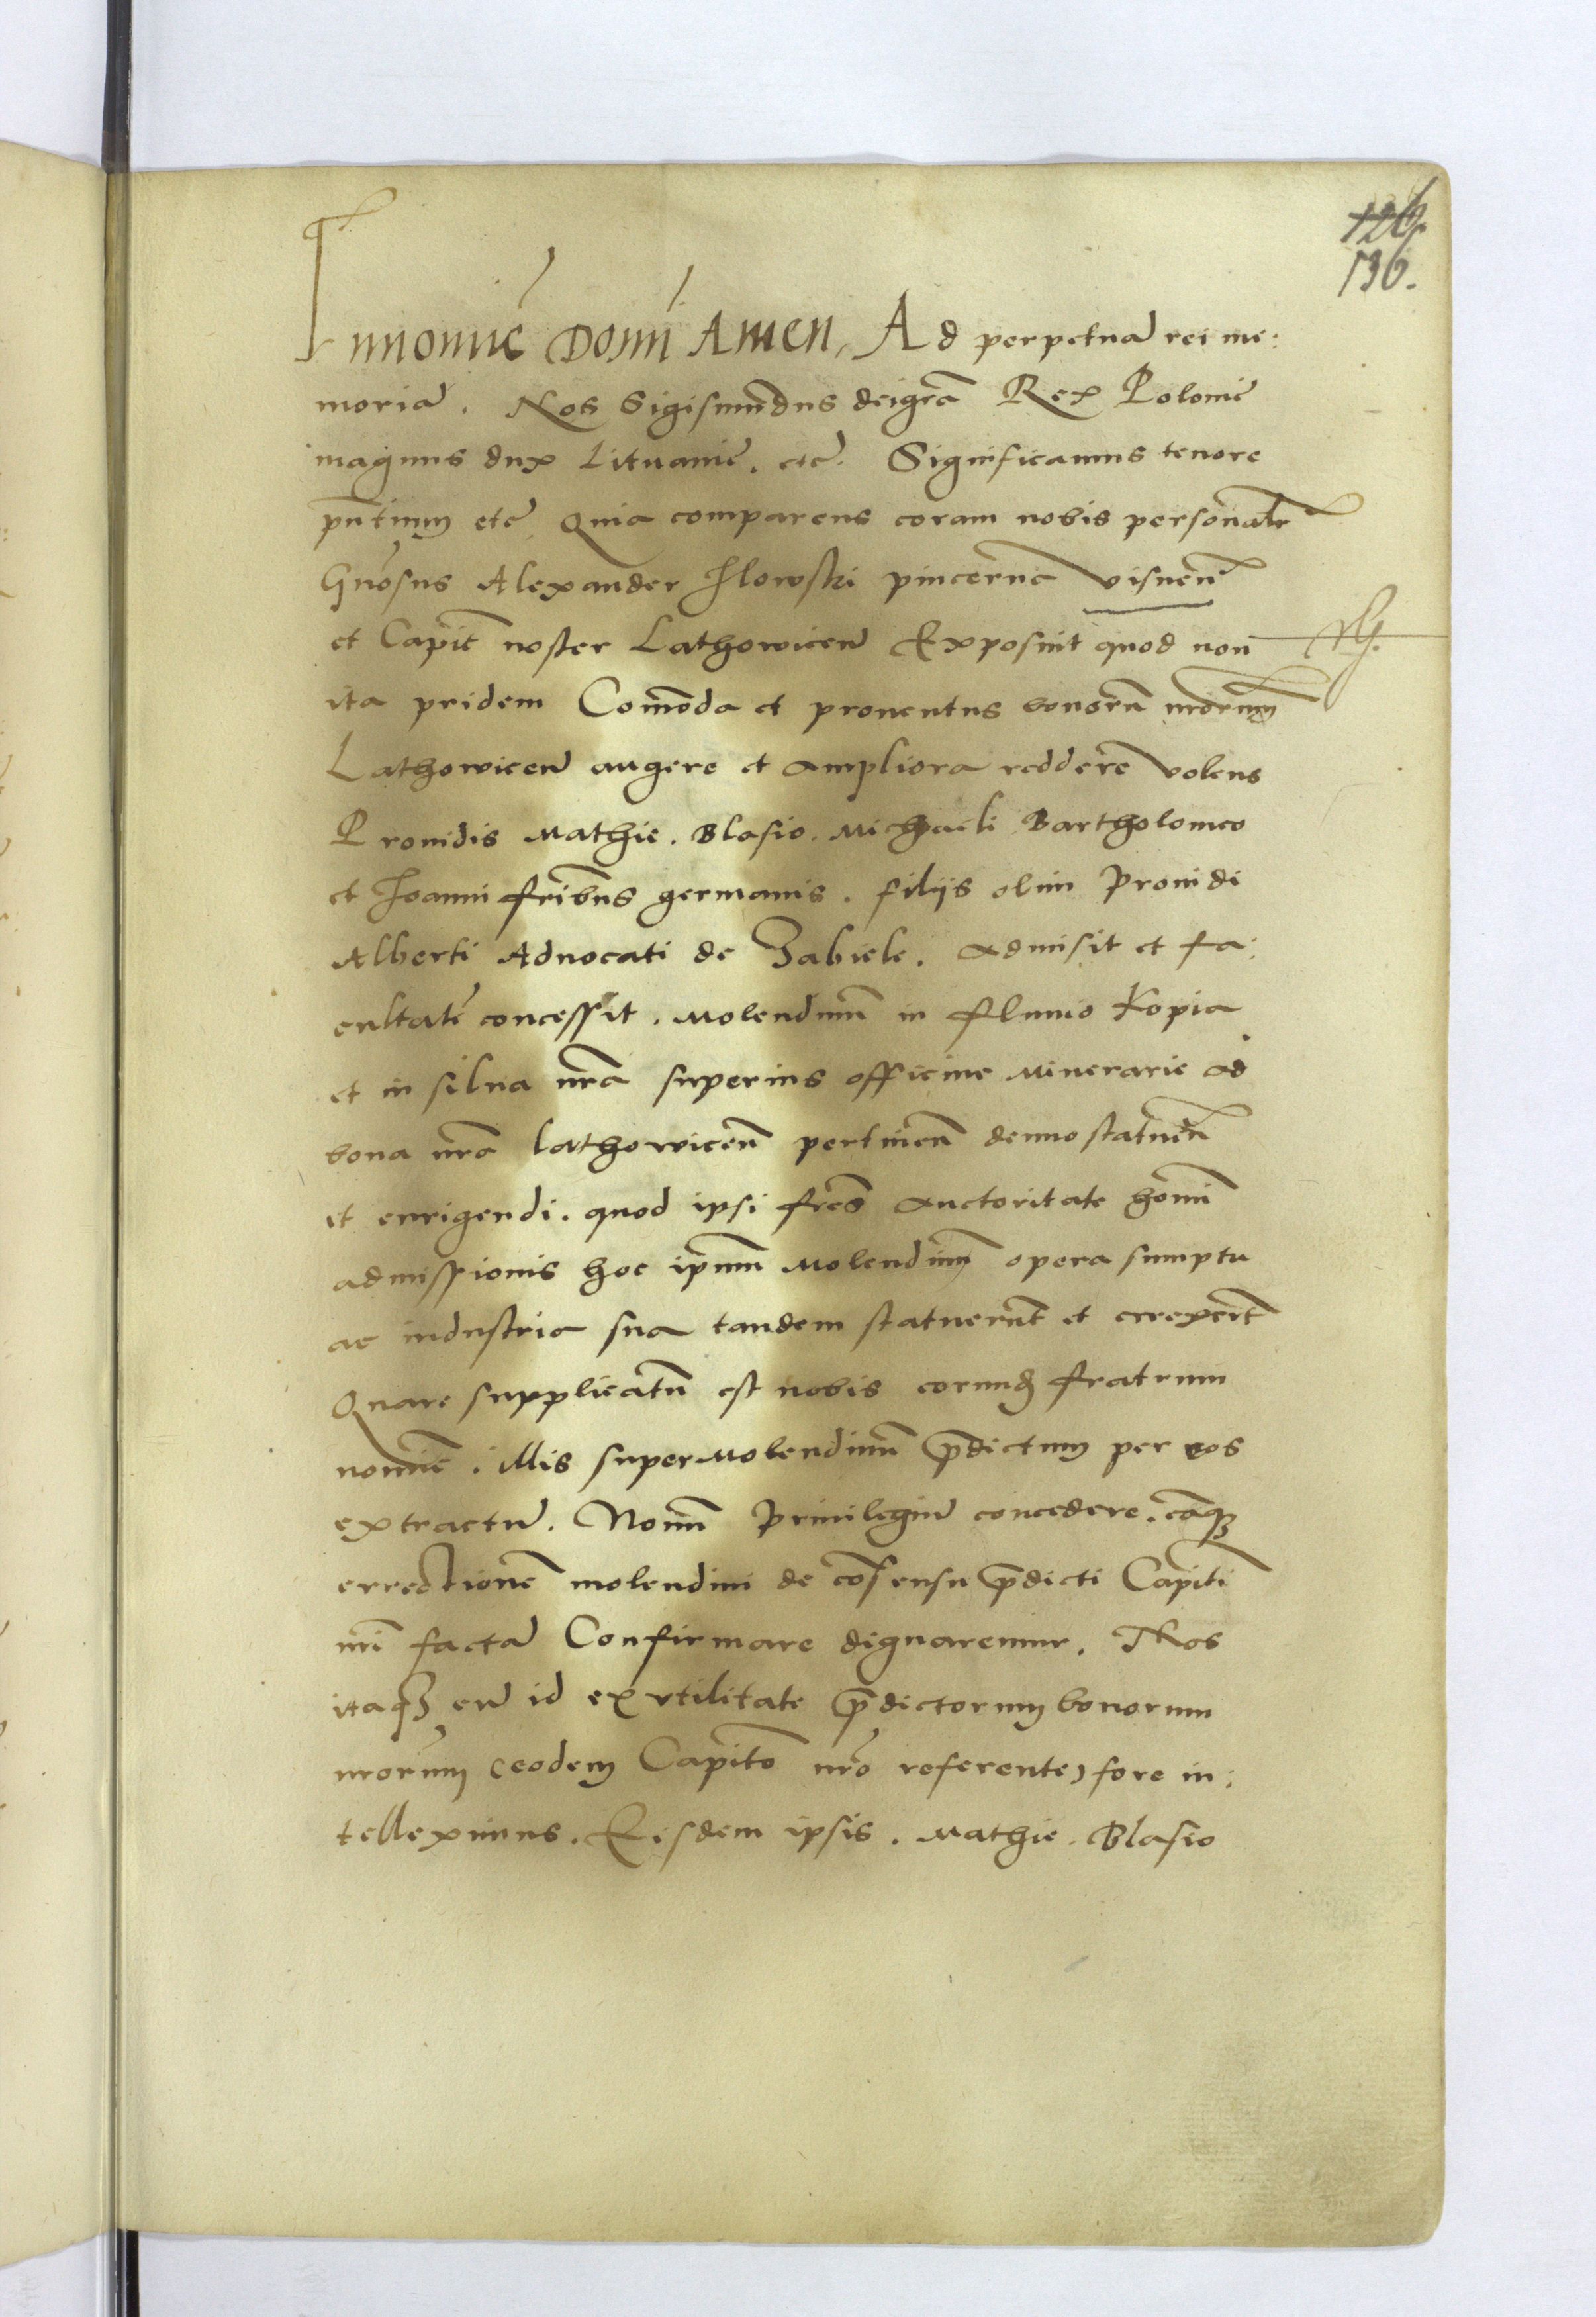 126.
136.
In nomīe Domī Amen, Ad perpetuā rei me:
moriā. Nos Sigismūdus dei grā Rex Polonie
magnus dux Lituanie. etc̄. Significamus tenore
pn̄tium etc̄ Quia comparens coram nobis personalr̄
Gn̄osus Alexander Ilowski pincerna visnen̄
et Capit̄ noster Lathowicen̄ Exposuit quod non
ita pridem Com̄oda et prouentus bonorū nr̄orum
Lathowicen̄ augere et ampliora reddere volens
Prouidis Mathie. Blasio. Michaeli Bartholomeo
et Joanni fr̄ibus germanis. filijs olim Prouidi
Alberti Aduocati de Zabiele. admisit et fa:
cultatē concessit. Molendinū in fluuio Kopia
et in silua nr̄a superius officine Minerarie ad
bona nr̄a Lathowicen̄ pertinen̄ denuo statuen̄
et enrigendi. quod ipsi fr̄es auctoritate hōmi
admissionis hoc ip̄num Molendinū opera sumptu
ac industria sua tandem statuerūt et errexerūt
Quare supplicatū est nobis eorundē fratrum
nomīe. illis super Molendinū p̄dictum per eos
extractū. Nouū Priuilegiū concedere. eāq3
errectionē molendini de cōsensu p̄dicti Capiti
nr̄i factā Confirmare dignaremur. Nos
itaq3 cū id ex vtilitate p̄dictorum bonorum
nr̄orum (eodem Capito nr̄o referente) fore in:
telleximus. Eisdem ipsis. Mathie. Blasio